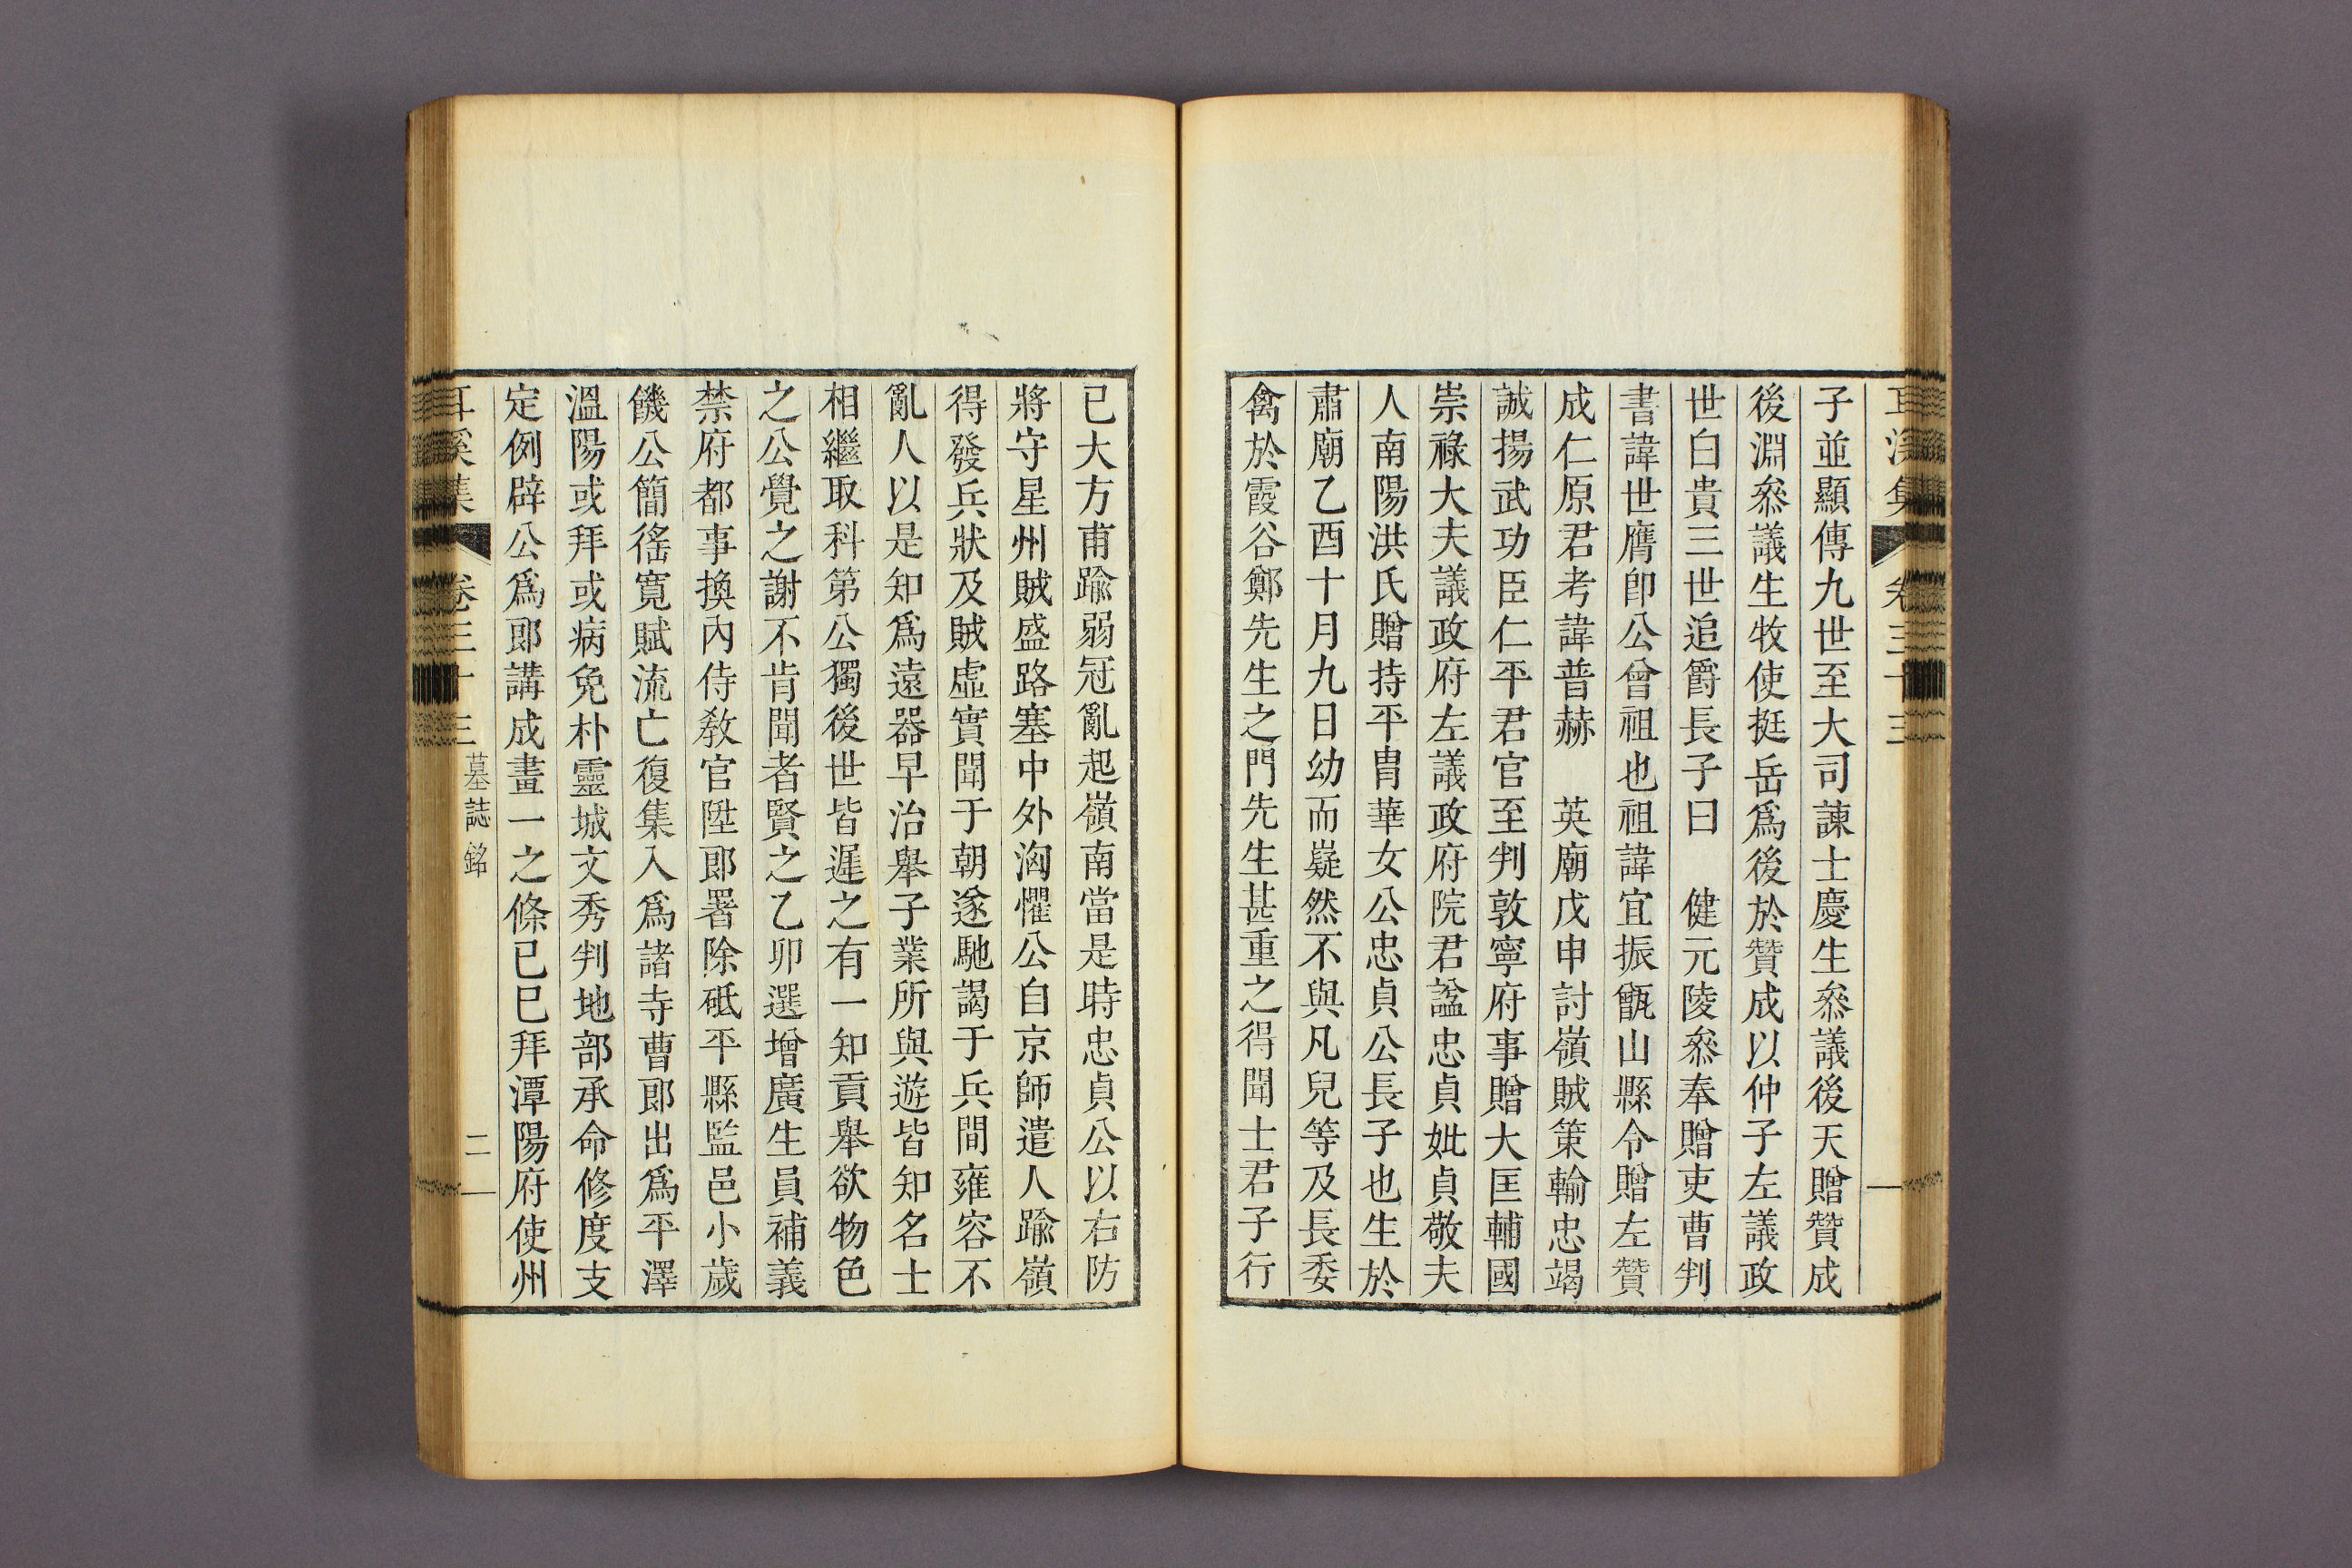 子並顯傳九世至大司諫士慶生叅議後天贈贊成
後淵叅議生牧使挺岳爲後於贊成以仲子左議政
世白貴三世追爵長子曰　健元陵叅奉贈吏曹判
書諱世膺卽公曾祖也祖諱宜振甑山縣令贈左贊
成仁原君考諱普赫　英廟戊申討嶺賊策輸忠竭
誠揚武功臣仁平君官至判敦寧府事贈大匡輔國
崇祿大夫議政府左議政府院君諡忠貞妣貞敬夫
人南陽洪氏贈持平胄華女公忠貞公長子也生於
肅廟乙酉十月九日幼而嶷然不與凡兒等及長委
禽於霞谷鄭先生之門先生甚重之得聞士君子行
已大方甫踰弱冠亂起嶺南當是時忠貞公以右防
將守星州賊盛路塞中外洶懼公自京師遣人踰嶺
得發兵狀及賊虛實聞于朝遂馳謁于兵間雍容不
亂人以是知爲遠器早治擧子業所與遊皆知名士
相繼取科第公獨後世皆遲之有一知貢擧欲物色
之公覺之謝不肯聞者賢之乙卯選增廣生員補義
禁府都事換內侍敎官陞郞署除砥平縣監邑小歲
饑公簡徭寬賦流亡復集入爲諸寺曹郞出爲平澤
溫陽或拜或病免朴靈城文秀判地部承命修度支
定例辟公爲郞講成畫一之條已巳拜潭陽府使州
耳溪集　卷三十三　墓誌銘　二